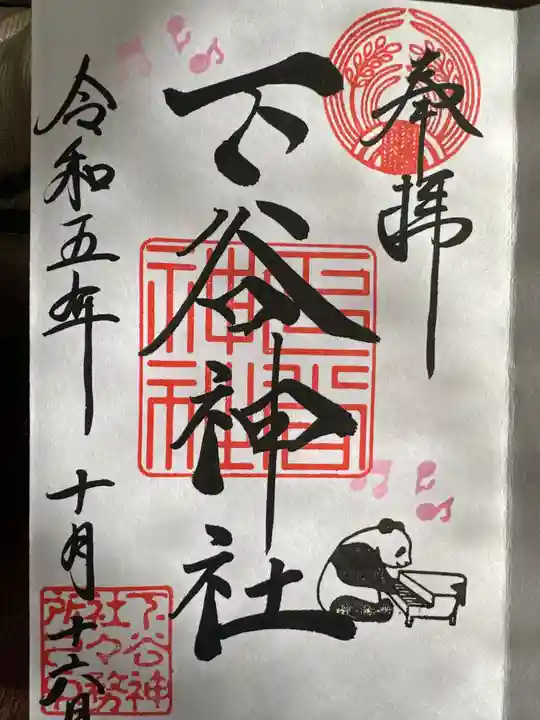 奉拝
下谷神社
下谷神社
令和五年 十月十六日
下谷神
社々務
所之印